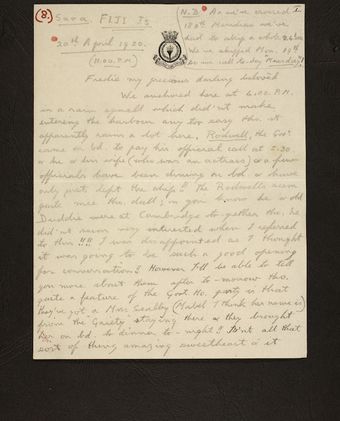 (8.)
Suva. FIJI Is
20th April 1920.
(11.00. P.M.)
N.B. As we've crossed I
180th Meridian we've
had to skip a whole 24 hrs
We've skipped Mon. 19th
so we call to-day Tuesday!
Freddie my precious darling beloved
We anchored here at 4.00. P.M.
in a rain squall which did n't make
entering the harbour any too easy tho. it
apparently rains a lot here, Rodwell, the Govr
came on bd. to pay his official call at 5.30
& he & his wife (who was an actress) & a few
officials have been dining on bd. & have
only just left the ship!! The Rodwells seem
quite nice tho. dull; m you know he & old
Duddie were at Cambridge to gether tho. he
did n't seem very interested when I referred
to him!!!! I was disappointed as I thought
it was going to be such a good opening
for conversation! However I'll be able to tell
you more about them after to-morrow tho.
quite a feature of the Govt Ho. party is that
they've got a Miss Sealby (Mabel I think her name is)
from the "Gaiety" staying there & they brought
her on bd. to dinner to-night! Is n't all that
sort of thing amazing sweetheart & it